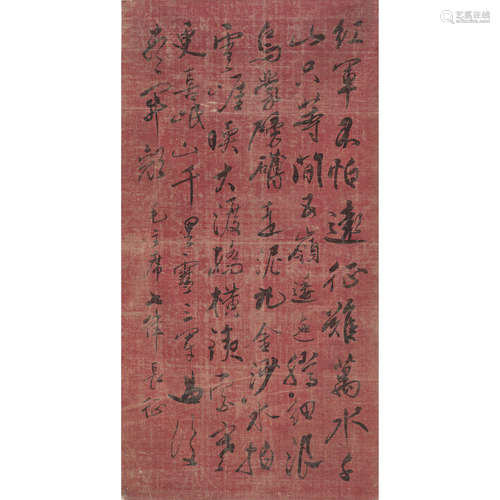 紅軍不怕遠征難萬水千
山只等閒五嶺逶迤騰細浪
烏蒙磅礴走泥丸金沙水拍
雲崖暖大渡橋橫鐵索寒
更喜岷山千里雪三軍過後
盡開顏 毛主席七律長征